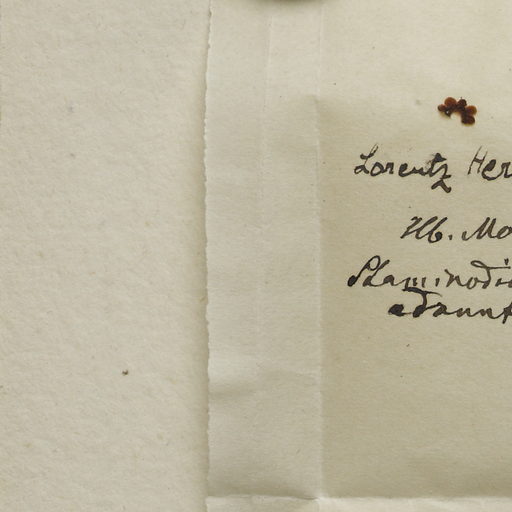 Lorentz Her
Hb. Mo
Staminodi
adsunt